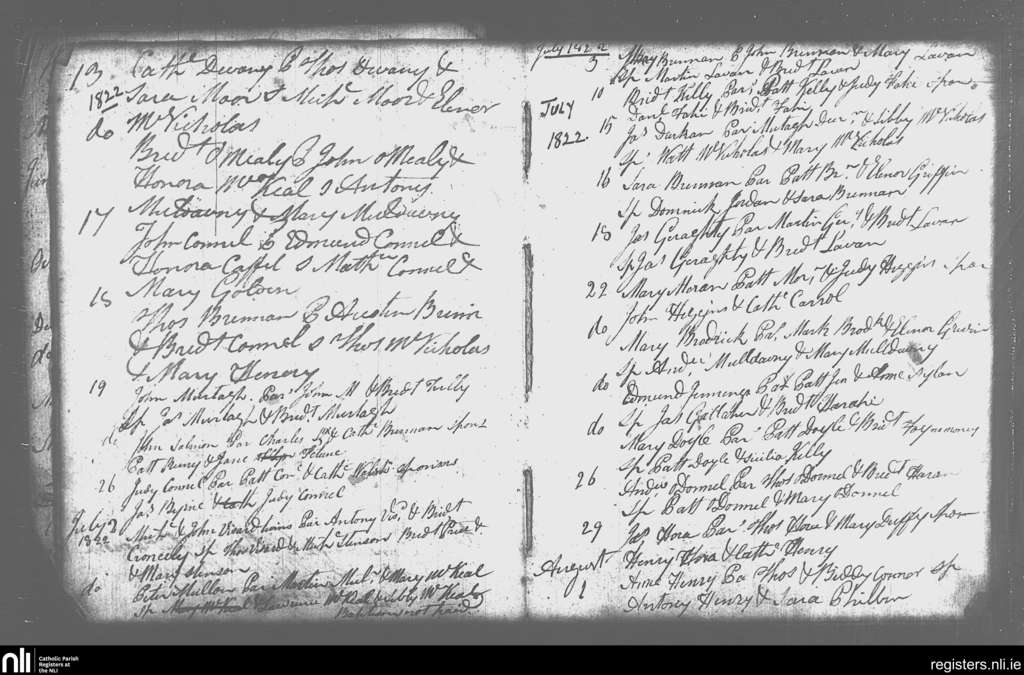 13 Cathe Devany P Thos Devany &
1822 Sara Moor S Michl Moor & Elenor
do McNicholas
Bridt OMealy P John OMealy &
Honora McKeal S Antony
Muldowny & Mary Muldowny
17 John Connel P Edmund Connel &
Honora Caffel S Mathw Connel &
18 Mary Golden
Thos Brennan P Austin Brinn
& Bridt Connel S Thos McNicholas
& Mary Henery
19 John Murtagh. Par John M & Bridt Tully
Sp Jas Murtagh & Bridt Murtagh
do John Salmon Par Charles & Cathe Brennan Spons
Patt Henry & Jane
26 Judy Connel Par Patt Con & Cathe Sponsors
Jas Byrne & Judy Connel
July 3 Michl & John twins Par Antony & Bridt
1822 Sp Thos & Michl Henson Bridt &
& Mary Henson
do Peter Mullon Par Martin Mul & Mary McKeal
Sp McKeal & Libby McKeal
Baptism not paid
July 1822
5 Mary Brunnen P John Brennan & Mary Lavan
Sp Martin Lavan & Bridt Lavan
10 Bridt Kelly Par Patt Kelly & Judy Fahi Spon
July Danl Fahi & Bridt Fahy
15 Jas Durkan Par Murtagh Dur & Libby McNicholas
1822 Sp Watt McNicholas & Mary McNicholas
16 Sara Brennan Par Patt Br & Elenor Griffin
Sp Dominick Jordan & Sara Brennan
18 Jas Geraghty Par Martin Ger & Bridt Lavan
Sp Jas Geraghty & Bridt Lavan
22 Mary Moran Patt Mor & Judy Higgins Spon
John Higgins & Cathe Carrol
do Mary Brodrick Par Mark Brod & Elenor
Sp Andw Muldowny & Mary Muldowny
do Edmund Jennings Par Patt Jen &
Sp Jas Gallaher & Bridt
do Mary Doyle Par Patt Doyle & Bridt Foy no money
Sp Patt Doyle & Kelly
26 Andw ODonnel Par Thos ODonnel & Bridt Haran
Sp Patt ODonnel & Mary ODonnel
29 Jas Hora Par Thos Hora & Mary Duffy Spon
Henry Hora & Cathe Henry
August
1 Anne Henry Pa Thos & Biddy Connor Sp
Antony Henry & Sara Philbin
nli Catholic Parish
Registers at
the NLI
registers.nli.ie